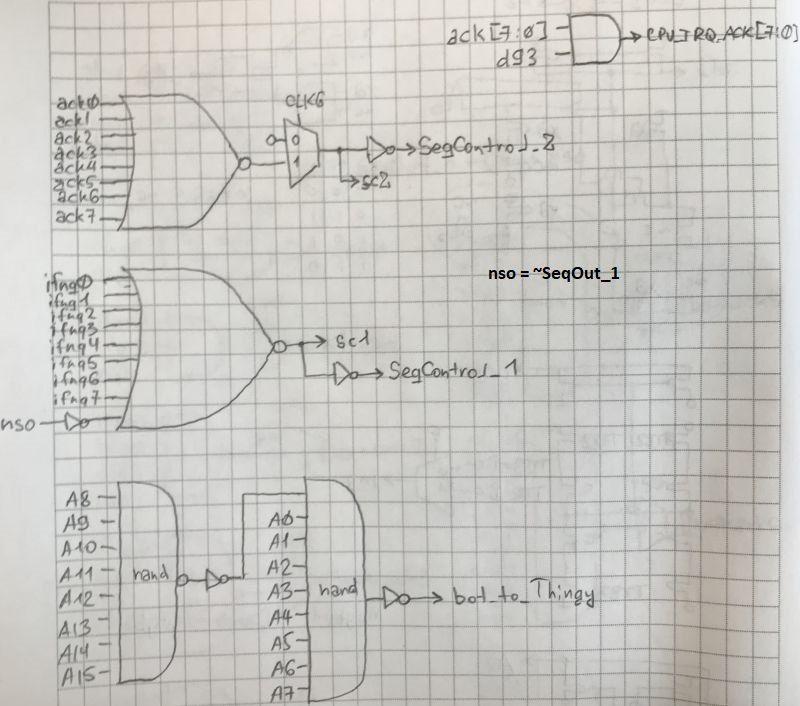 ack[7:0]
d93
CPU_IRQ_ACK[7:0]
CLK6
ack0
ack1
ack2
ack3
ack4
ack5
ack6
ack7
0
1
SeqControl_2
sc2
nso = ~SeqOut_1
ifnq0
ifnq1
ifnq2
ifnq3
ifnq4
ifnq5
ifnq6
ifnq7
nso
sc1
SeqControl_1
A8
A9
A10
A11
A12
A13
A14
A15
nand
A0
A1
A2
A3
A4
A5
A6
A7
nand
bot_to_Thingy